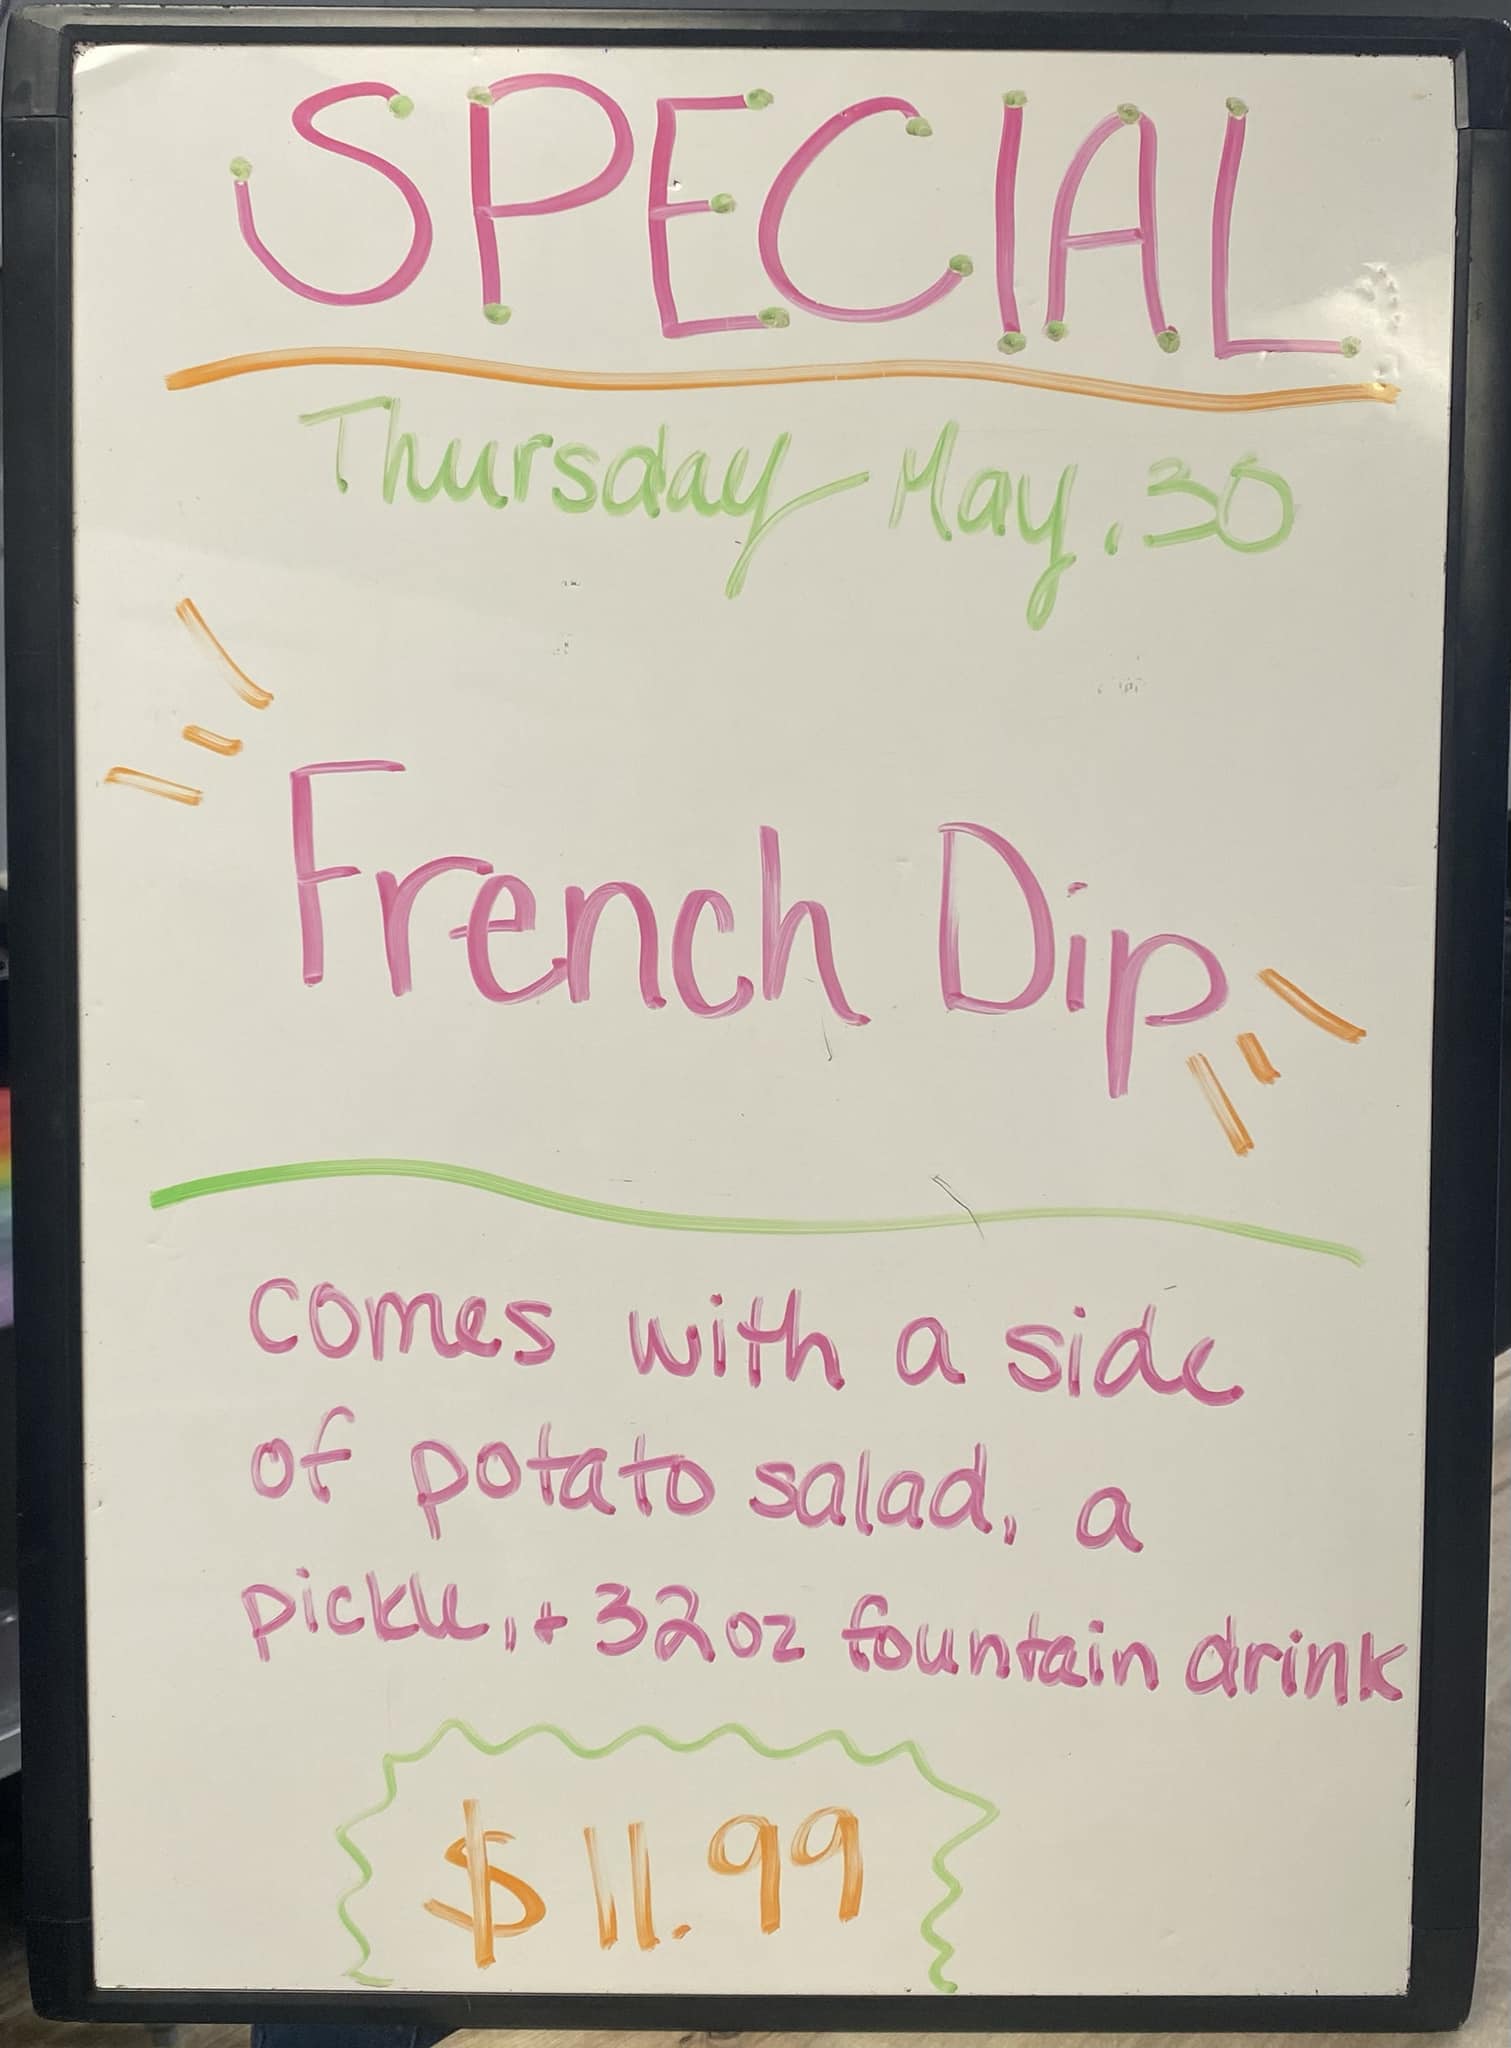 SPECIAL
Thursday - May. 30
French Dip
comes with a side
of potato salad, a
pickle, + 32oz fountain drink
$11.99